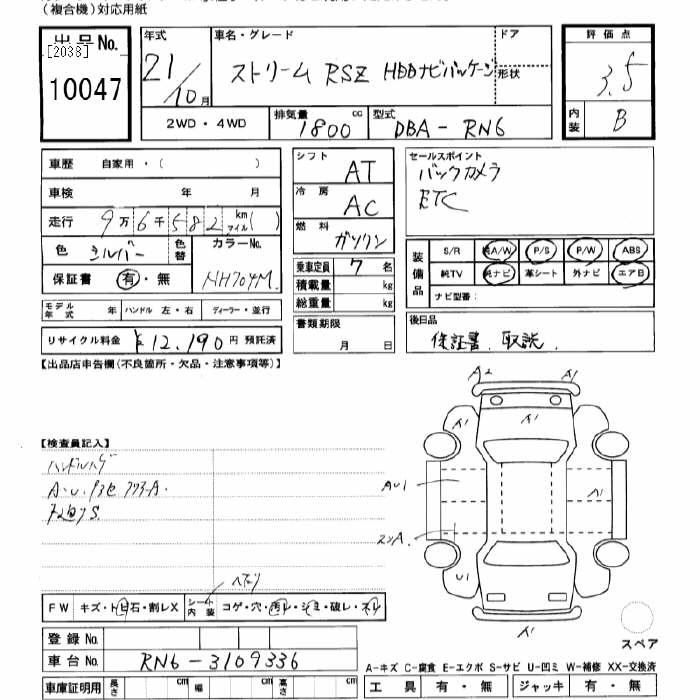 (複合機)対応用紙
出品No.
[2038]
10047
年式
21/10月
車名・グレード
ストリーム RSZ HDDナビパッケージ
ドア
形状
2WD・4WD
排気量
1800 cc
型式
DBA - RN6
評価点
3.5
内装
B
車歴 自家用・( )
車検 年 月
走行 9万6千582 km マイル( )
色 シルバー
色替
カラーNo.
NH704M
保証書 有・無
モデル年式 年 ハンドル 左・右 ディーラー・並行
リサイクル料金 ¥12,190円 預託済
シフト AT
冷房 AC
燃料 ガソリン
乗車定員 7 名
積載量 kg
総重量 kg
書類期限
月 日
セールスポイント
バックカメラ
ETC
装備品
S/R 純A/W P/S P/W ABS
純TV 純ナビ 革シート 外ナビ エアB
ナビ型番:
後日品
保証書、取説、
【出品店申告欄(不良箇所・欠品・注意事項等)】
【検査員記入】
ハンドルハゲ
FW キズ・トビ石・割レX
シート内装 コゲ・穴・汚レ・シミ・破レ・スレ
A2
A1
A1
A1
A1
AU1
A1
U1
A1
スペア
登録No.
車台No. RN6-3109336
車庫証明用 長さ cm 幅 cm 高さ cm
A-キズ C-腐食 E-エクボ S-サビ U-凹ミ W-補修 XX-交換済
工具 有・無 ジャッキ 有・無